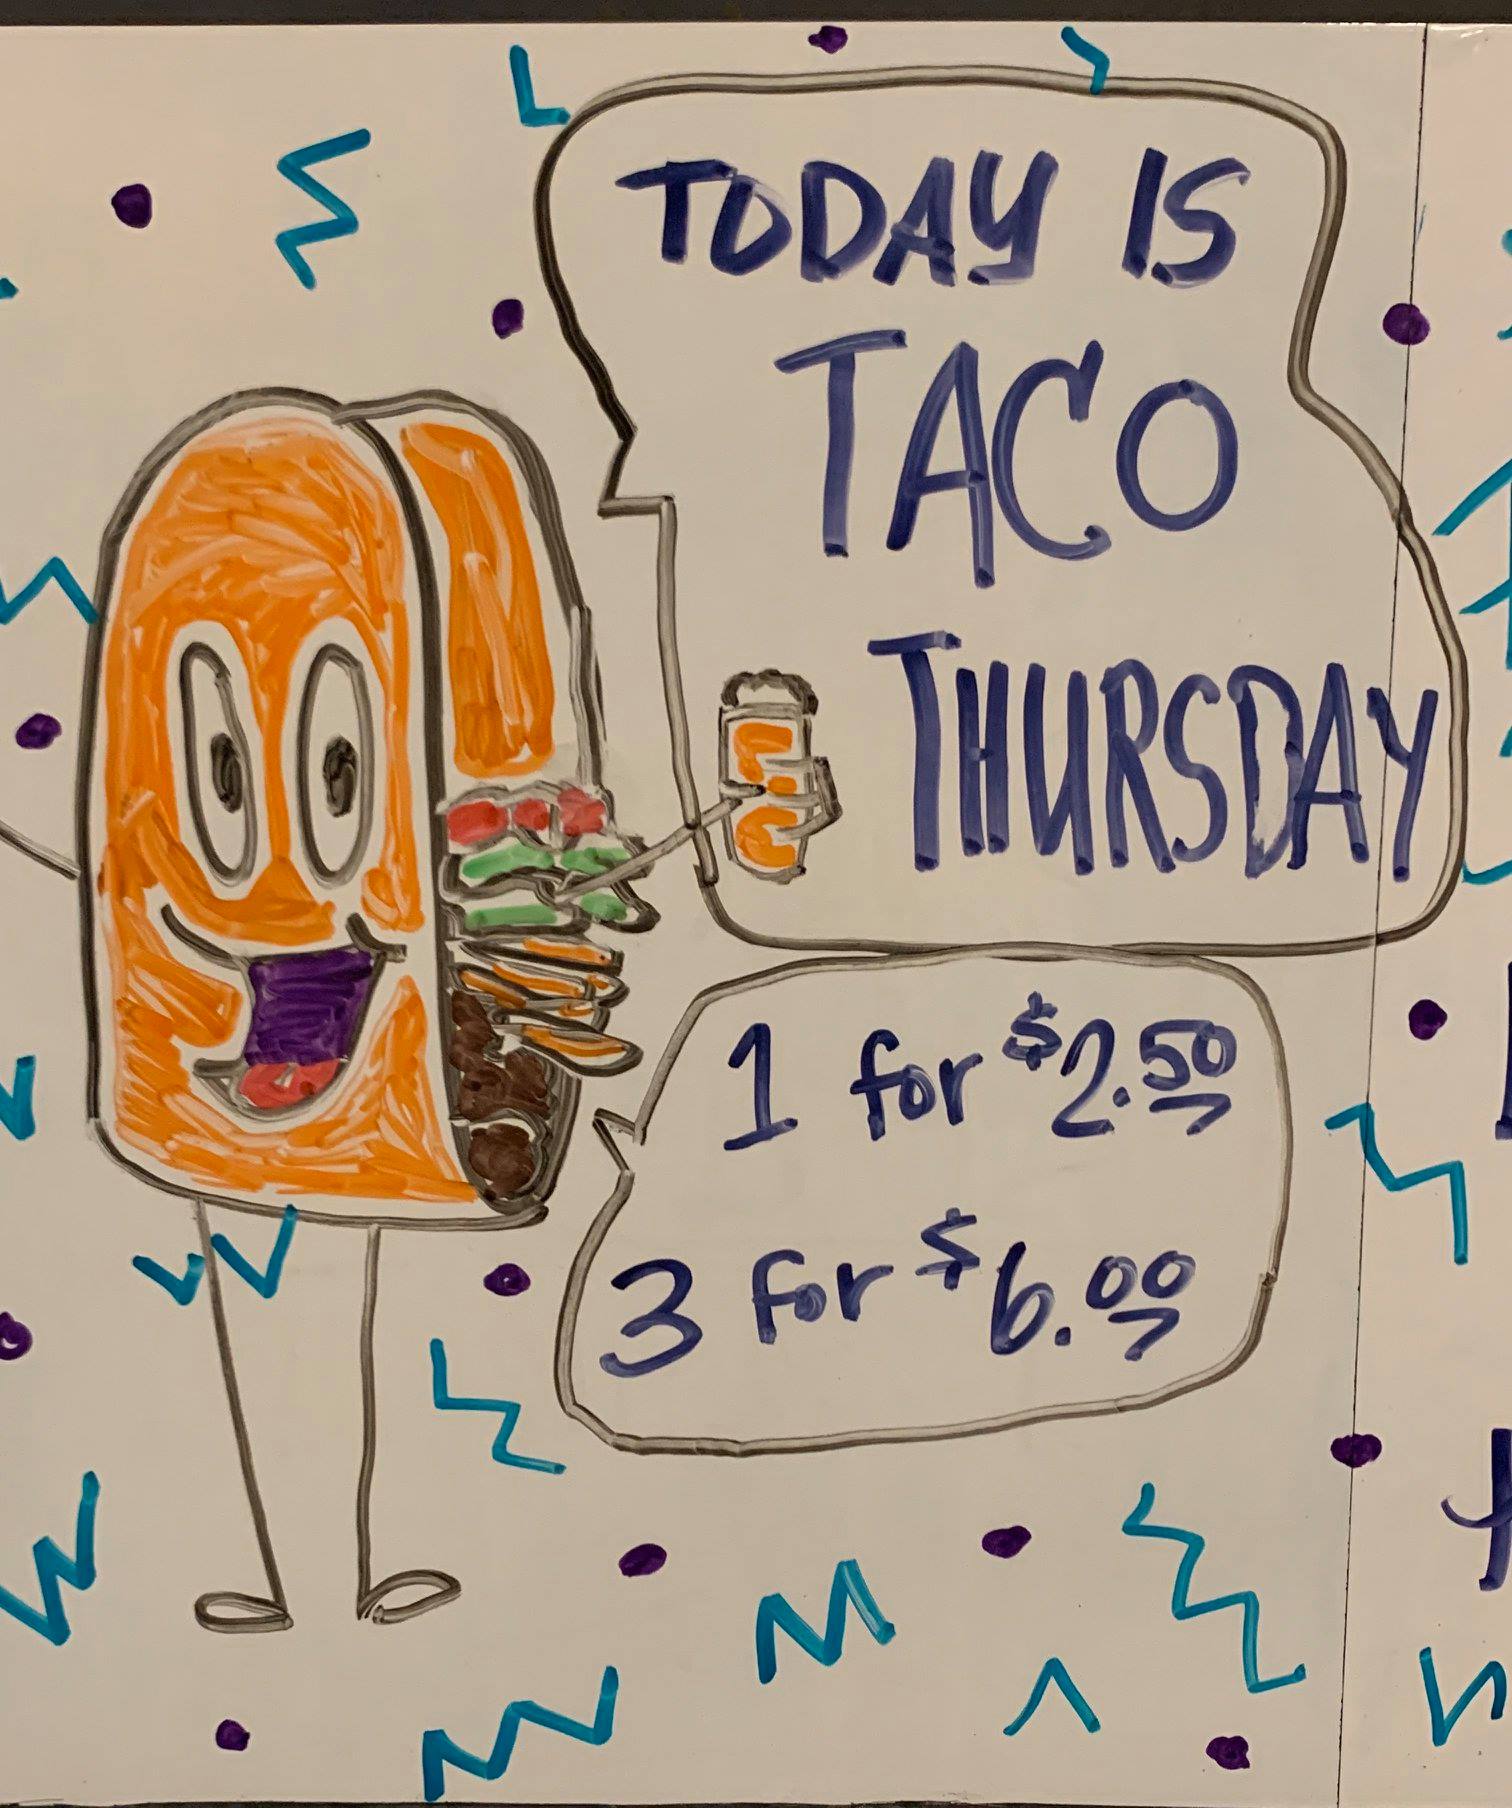 TODAY IS
TACO
THURSDAY
1 for $2.50
3 for $6.00